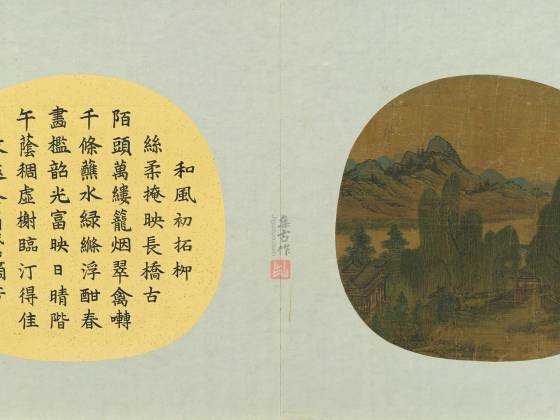 和風初拓柳
絲柔掩映長橋古
陌頭萬縷籠烟翠禽囀
千條蘸水緑絛浮酣春
畫檻韶光富映日晴階
午蔭稠虛榭臨汀得佳
集古作